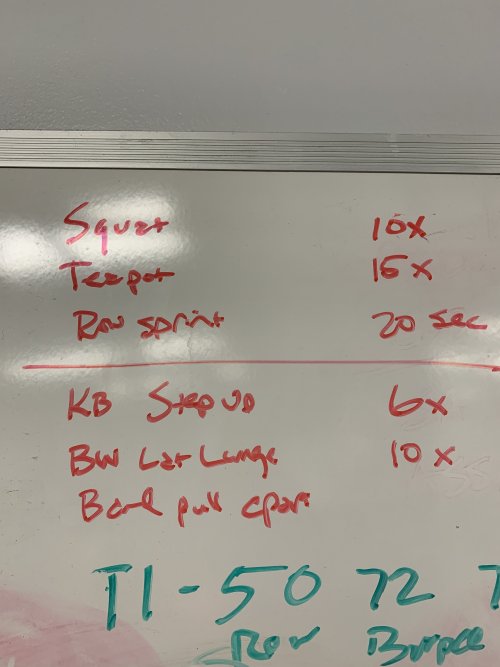 Squat 10x
Teapot 15x
Row sprint 20 sec
KB Step up 6x
BW Lat Lunge 10x
Band pull apart
T1 - 50 72
Row Burpee